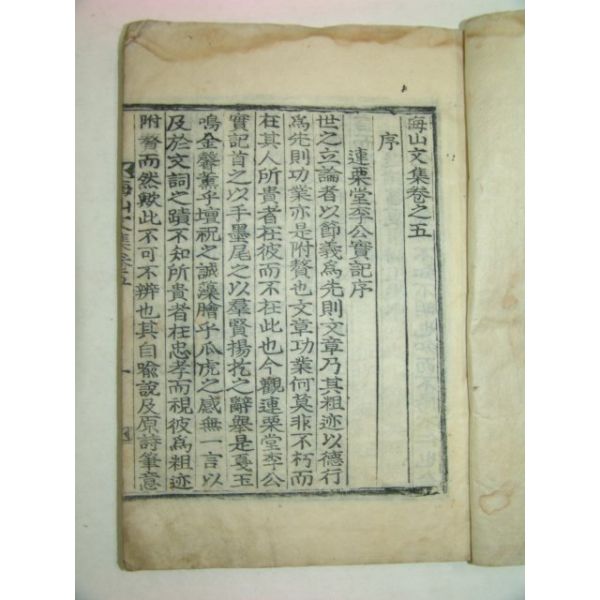 海山文集卷之五
序
連栗堂李公實記序
世之立論者以節義爲先則文章乃其粗迹以德行
爲先則功業亦是附贅也文章功業何莫非不朽而
在其人所貴者在彼而不在此也今觀連栗堂李公
實記首之以手墨尾之以羣賢揚扢之辭舉是戞玉
鳴金馨薰乎壇祝之誠藻膾乎瓜虎之感無一言以
及於文詞之蹟不知所貴者在忠孝而視彼爲粗迹
附贅而然歟此不可不辨也其自喩說及原詩筆意
海山文集卷五